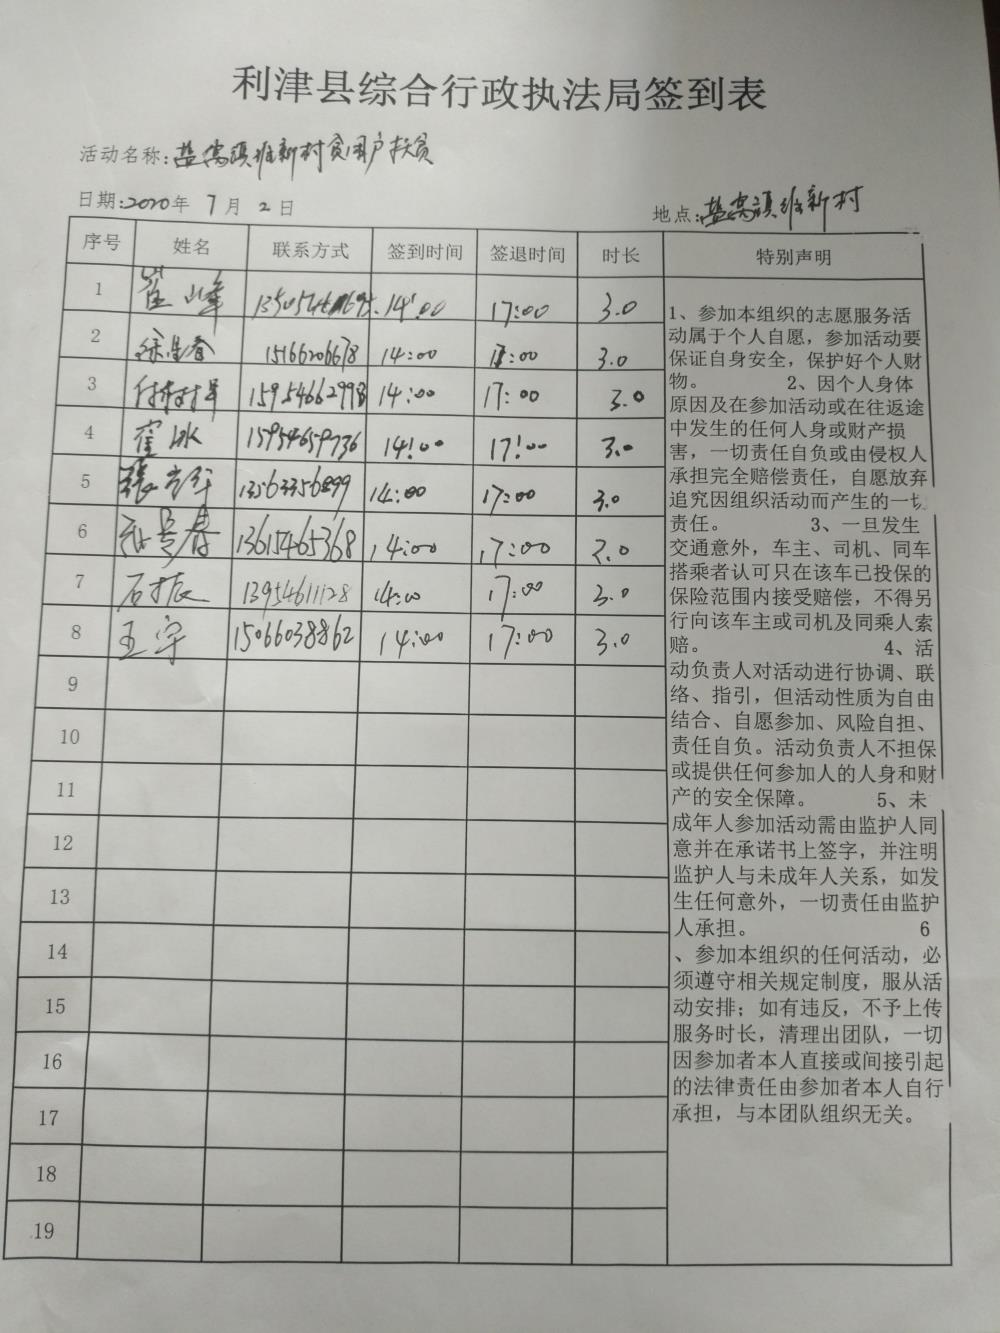 利津县综合行政执法局签到表
活动名称:盐窝镇维新村贫困户扶贫
日期:2020年 7月 2日 地点:盐窝镇维新村
序号 姓名 联系方式 签到时间 签退时间 时长 特别声明
1 崔峰 14:00 17:00 3.0
2 15166206678 14:00 17:00 3.0
3 15954662998 14:00 17:00 3.0
4 崔冰 15954659736 14:00 17:00 3.0
5 13563356899 14:00 17:00 3.0
6 13615465368 14:00 17:00 3.0
7 石振 13954611128 14:00 17:00 3.0
8 王宇 15066038862 14:00 17:00 3.0
9
10
11
12
13
14
15
16
17
18
19
1、参加本组织的志愿服务活
动属于个人自愿，参加活动要
保证自身安全，保护好个人财
物。 2、因个人身体
原因及在参加活动或在往返途
中发生的任何人身或财产损
害，一切责任自负或由侵权人
承担完全赔偿责任，自愿放弃
追究因组织活动而产生的一切
责任。 3、一旦发生
交通意外，车主、司机、同车
搭乘者认可只在该车已投保的
保险范围内接受赔偿，不得另
行向该车主或司机及同乘人索
赔。 4、活
动负责人对活动进行协调、联
络、指引，但活动性质为自由
结合、自愿参加、风险自担、
责任自负。活动负责人不担保
或提供任何参加人的人身和财
产的安全保障。 5、未
成年人参加活动需由监护人同
意并在承诺书上签字，并注明
监护人与未成年人关系，如发
生任何意外，一切责任由监护
人承担。 6
、参加本组织的任何活动，必
须遵守相关规定制度，服从活
动安排；如有违反，不予上传
服务时长，清理出团队，一切
因参加者本人直接或间接引起
的法律责任由参加者本人自行
承担，与本团队组织无关。